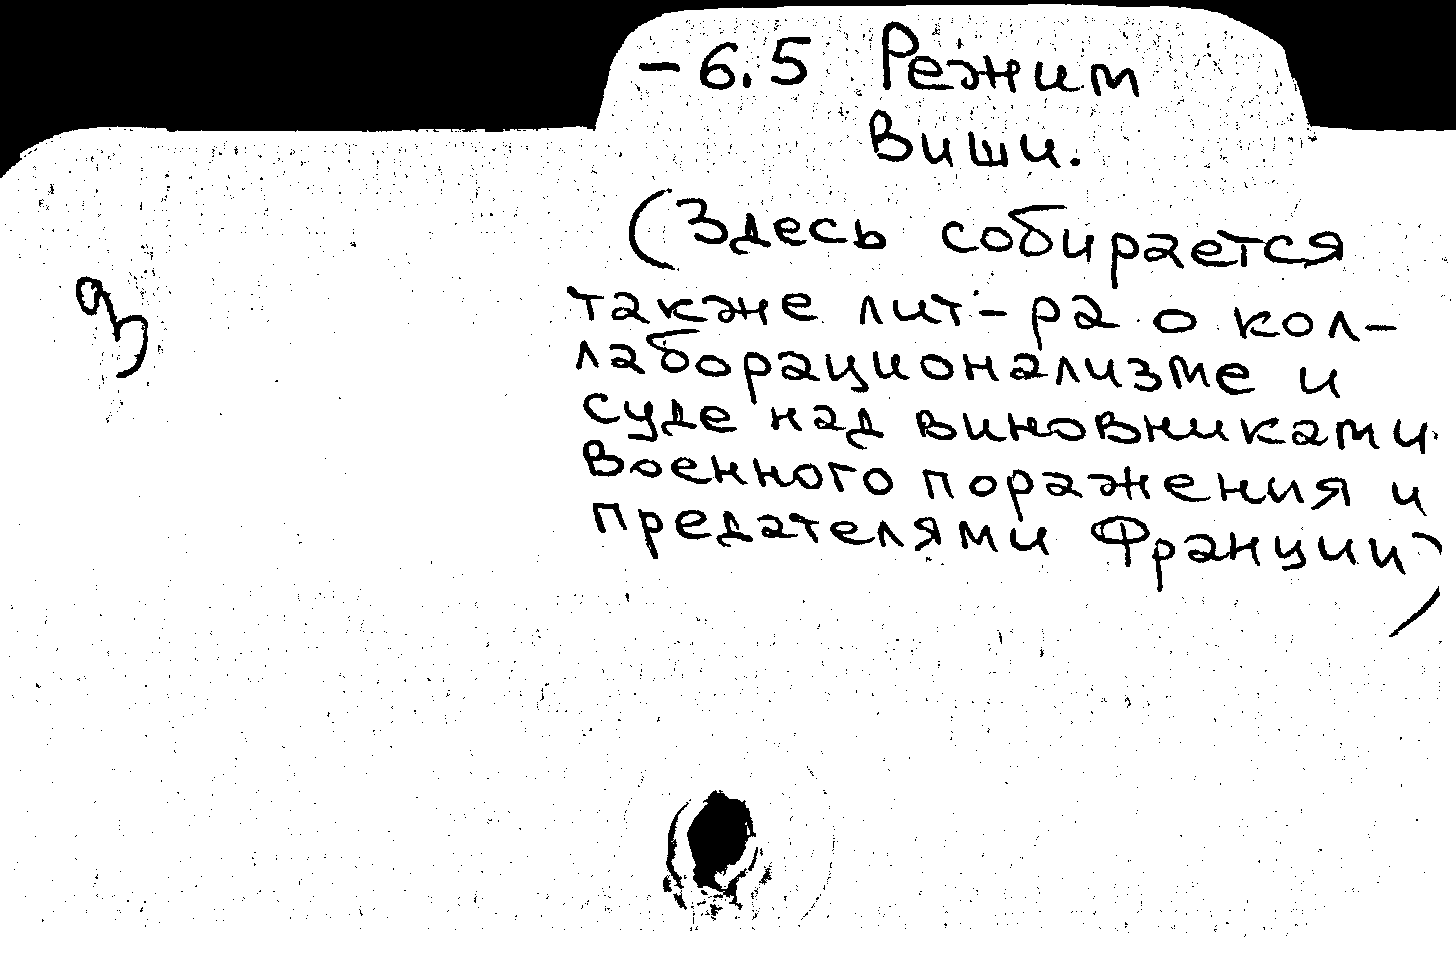 -6.5 Режим
Виши.
(Здесь собирается
также лит-ра о кол-
лаборационализме и
суде над виновниками
военного поражения и
предателями Франции)